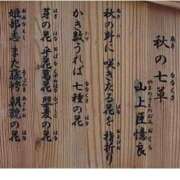 秋の七草
山上臣憶良
秋の野に 咲きたる花を 指折り
かき数うれば 七種の花
芽の花 乎花葛花 瞿麦の花
姫部志 また藤袴 朝貌の花